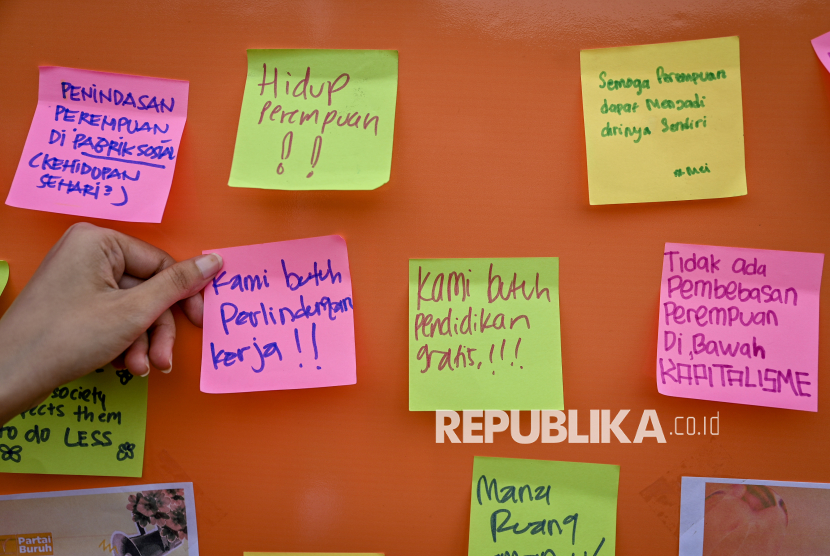 PENINDASAN
PEREMPUAN
DI PABRIK SOSIAL
(KEHIDUPAN
SEHARI²)
Hidup
perempuan
!!
Semoga Perempuan
dapat Menjadi
dirinya Sendiri
#Mei
Kami butuh
Perlindungan
kerja!!
Kami butuh
pendidikan
gratis,!!!
Tidak ada
Pembebasan
Perempuan
Di, Bawah
KAPITALISME
REPUBLIKA.co.id
society
them
to do LESS
Mana
Ruang
Partai
Buruh